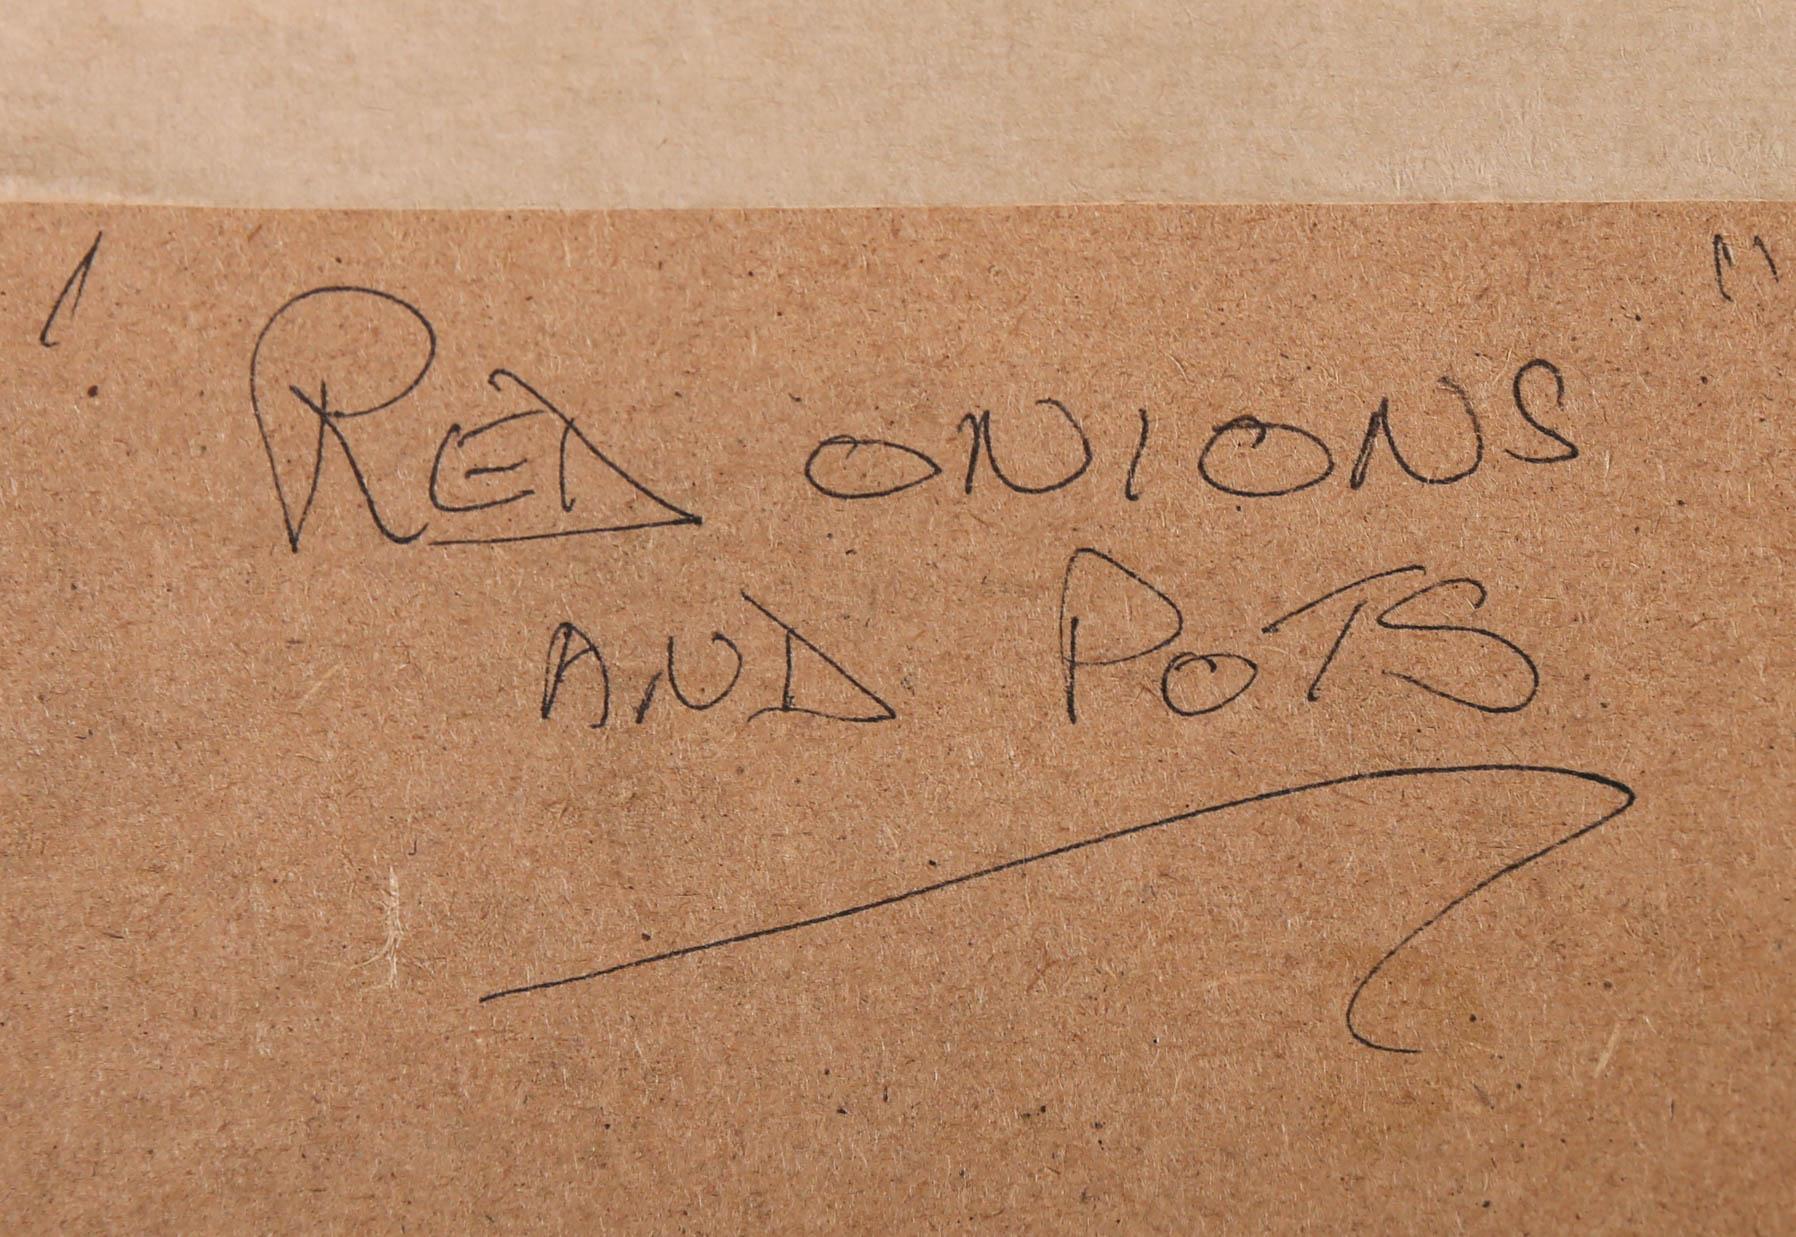 "RED ONIONS"
AND POTS